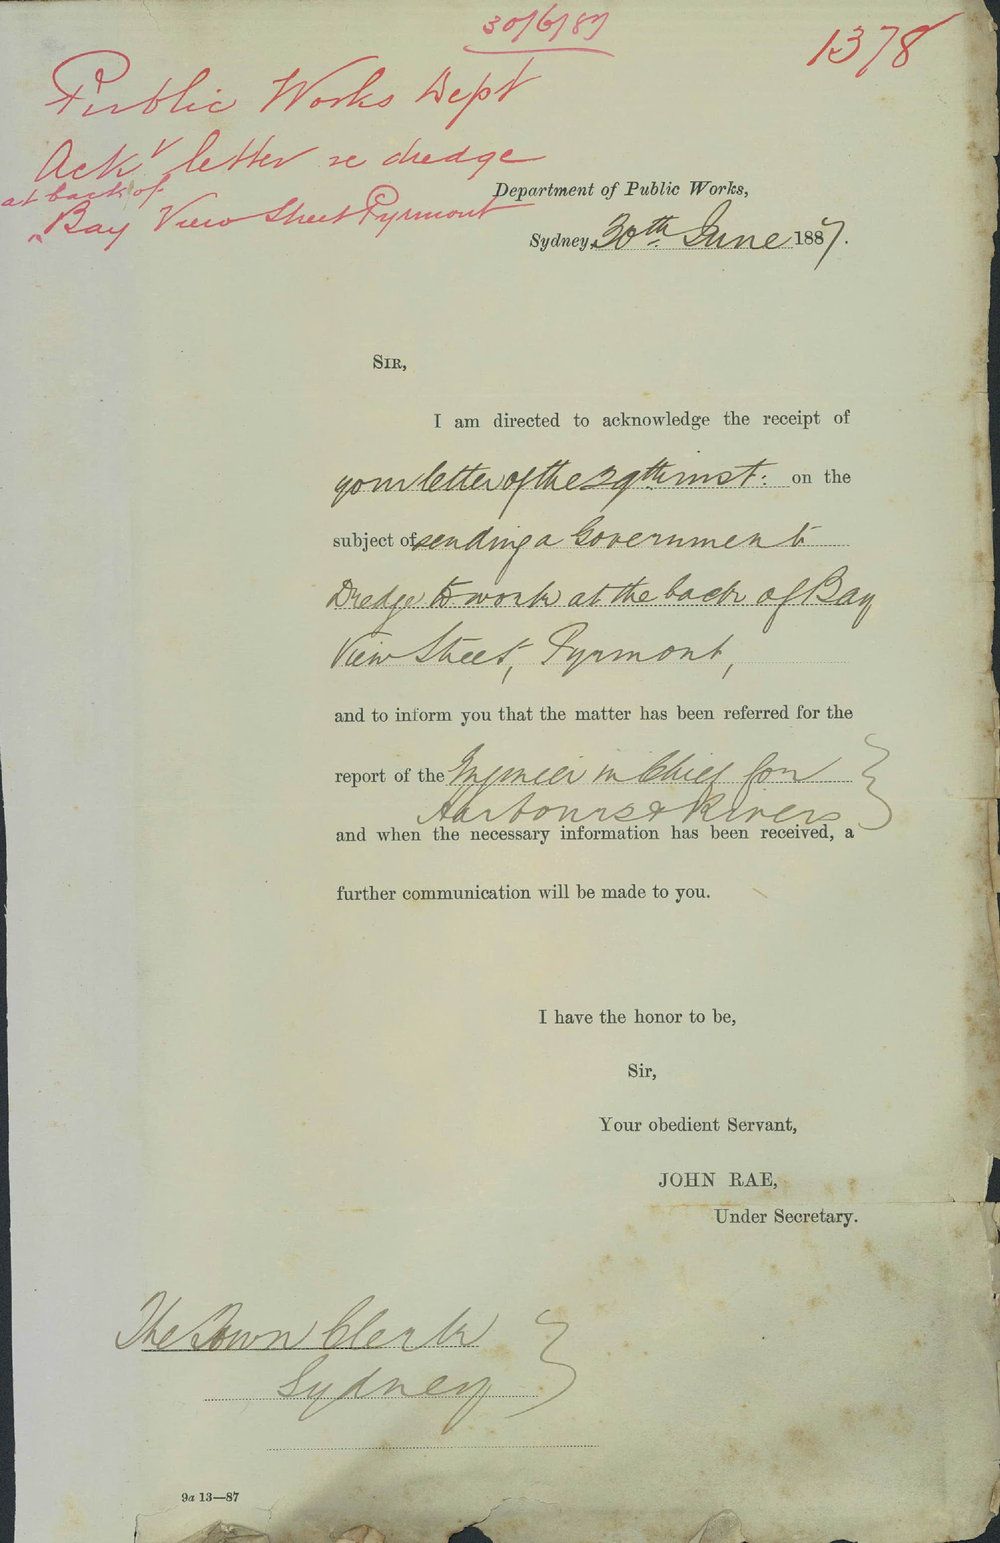 30/6/87
1378
Public Works Dept
Ackr letter re dredge
at back of
Bay View Street Pyrmont
Department of Public Works,
Sydney, 30th June 1887.
SIR,
I am directed to acknowledge the receipt of
your letter of the 29th inst: on the
subject of sending a Government
Dredge to work at the back of Bay
View Street, Pyrmont,
and to inform you that the matter has been referred for the
report of the Engineer in Chief for
Harbours & Rivers
and when the necessary information has been received, a
further communication will be made to you.
I have the honor to be,
Sir,
Your obedient Servant,
JOHN RAE,
Under Secretary.
The Town Clerk
Sydney
9a 13—87